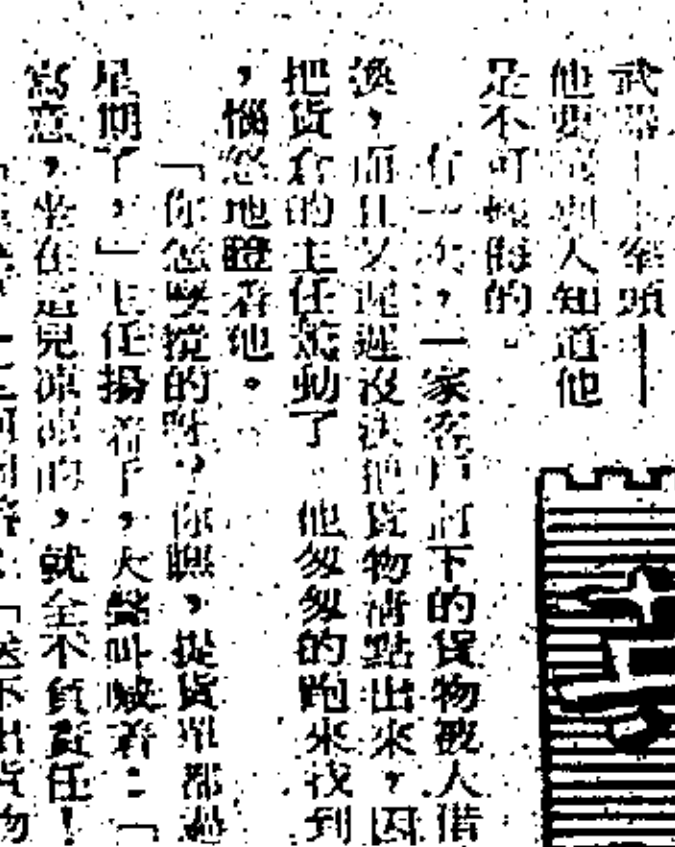 武器——拳頭——
他要別人知道他
是不可輕侮的。
有一次，一家客戶訂下的貨物被人借
渙，而且又遲遲沒法把貨物清點出來，因
把貨倉的主任驚動了。他匆匆的跑來找到
，惱怒地瞪着他。
「你怎麼攪的呀？你瞧，提貨單都過
星期了，」主任揚着手，大聲叫喊着：「
寫意，坐在這兒涼涼的，就全不負責任！
「送不出貨物